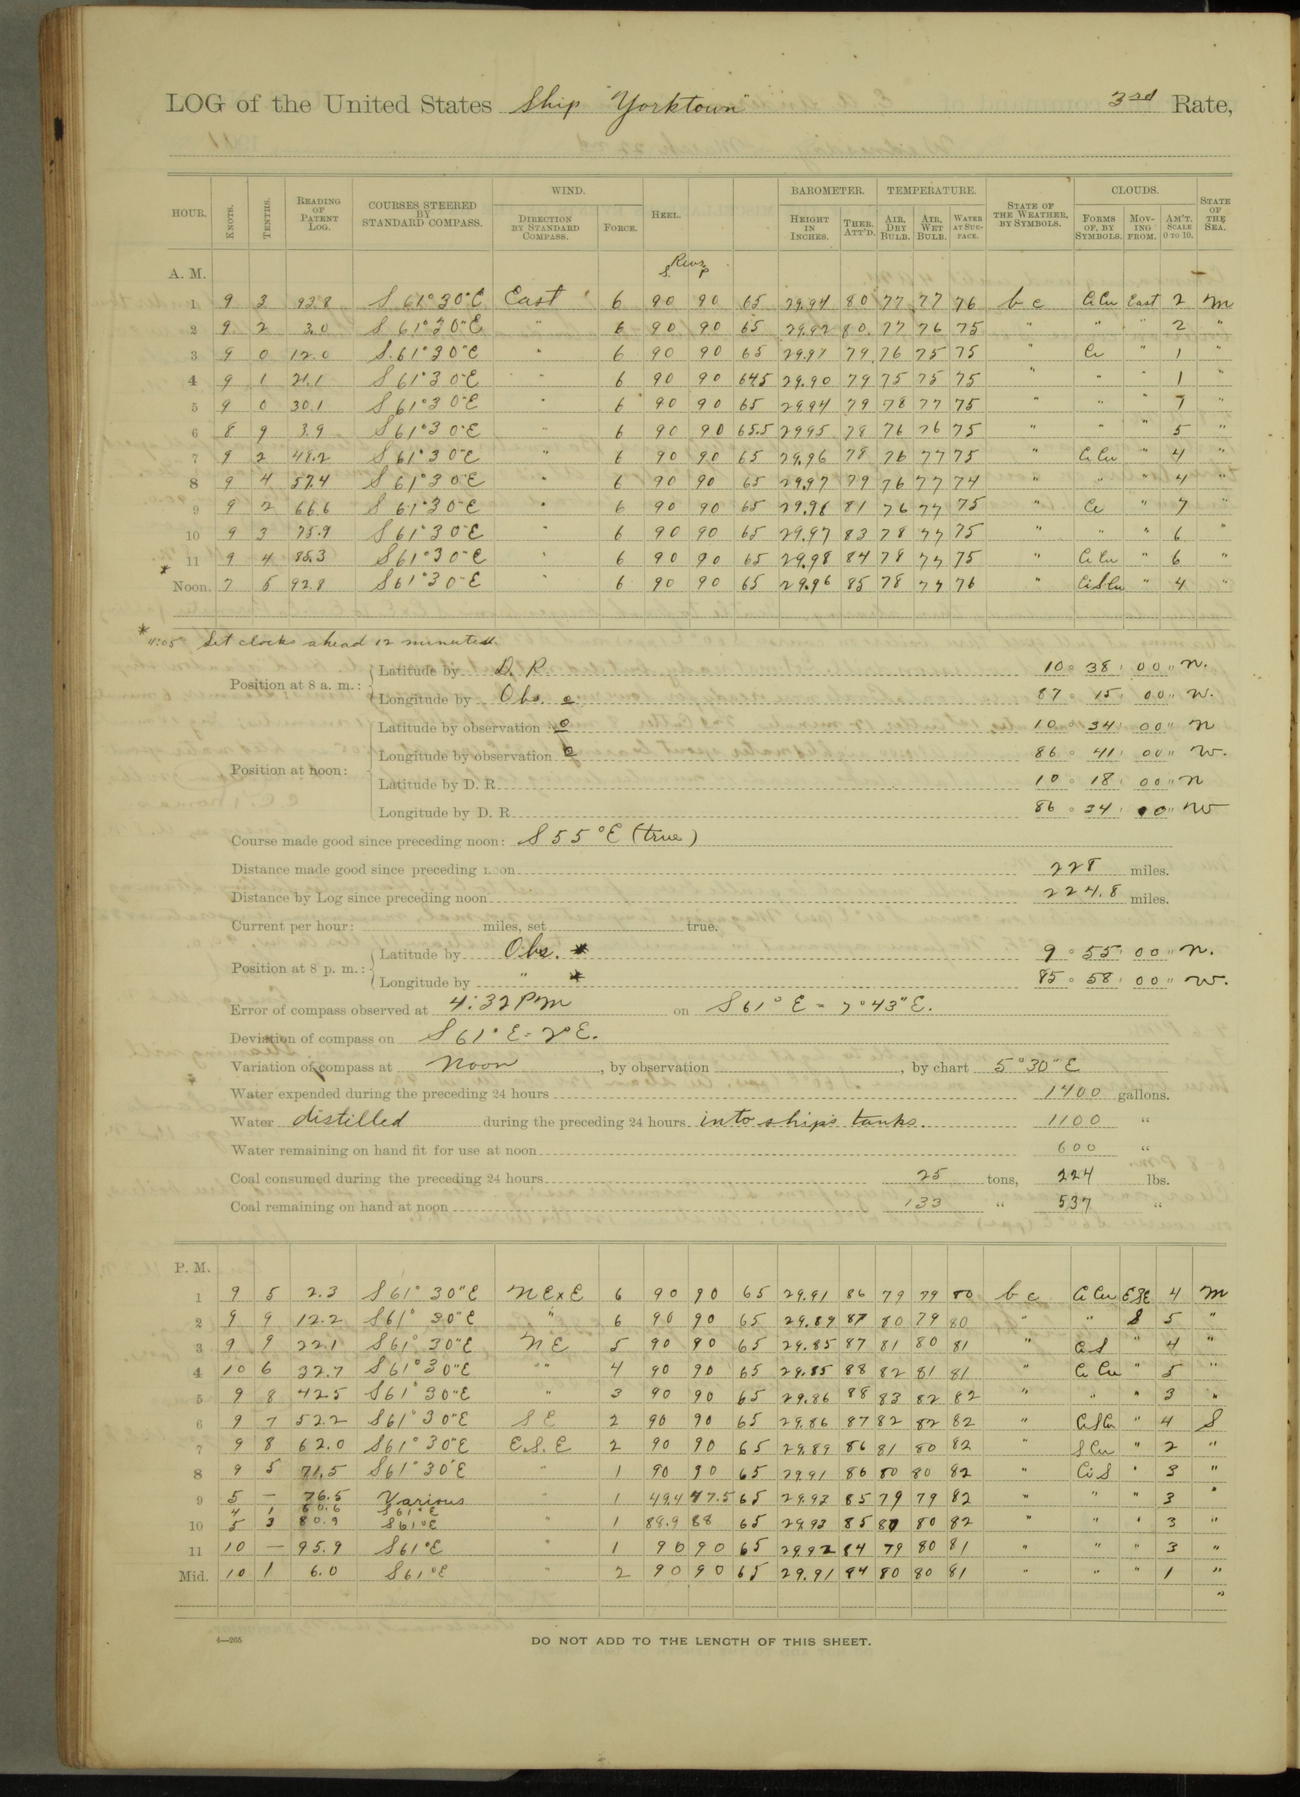 LOG of the United States Ship "Yorktown" 3rd Rate,
HOUR. KNOTS. TENTHS. READING OF PATENT LOG. COURSES STEERED BY STANDARD COMPASS. WIND. DIRECTION BY STANDARD COMPASS. FORCE. HEEL. BAROMETER. HEIGHT IN INCHES. THER. ATT'D. TEMPERATURE. AIR, DRY BULB. AIR, WET BULB. WATER AT SURFACE. STATE OF THE WEATHER, BY SYMBOLS. CLOUDS. FORMS OF, BY SYMBOLS. MOVING FROM. AM'T. SCALE 0 TO 10. STATE OF THE SEA.
Revs
A. M. S. P
1 9 3 92.8 S 61° 30" E East 6 90 90 65 29.94 80 77 77 76 b c Ci Cu East 2 M
2 9 2 3.0 S 61° 30" E " 6 90 90 65 29.92 80 77 76 75 " " " 2 "
3 9 0 12.0 S. 61° 30" E " 6 90 90 65 29.91 79 76 75 75 " Ci " 1 "
4 9 1 21.1 S 61° 30" E " 6 90 90 645 29.90 79 75 75 75 " " " 1 "
5 9 0 30.1 S 61° 30" E " 6 90 90 65 29.94 79 78 77 75 " " " 7 "
6 8 9 3.9 S 61° 30" E " 6 90 90 65.5 2995 78 76 76 75 " " " 5 "
7 9 2 48.2 S 61° 30" E " 6 90 90 65 29.96 78 76 77 75 " Ci Cu " 4 "
8 9 4 57.4 S 61° 30" E " 6 90 90 65 29.97 79 76 77 74 " " " 4 "
9 9 2 66.6 S 61° 30" E " 6 90 90 65 29.98 81 76 77 75 " Ci " 7 "
10 9 3 75.9 S 61° 30" E " 6 90 90 65 29.97 83 78 77 75 " " " 6 "
11 9 4 85.3 S 61° 30" E " 6 90 90 65 29.98 84 78 77 75 " Ci Cu " 6 "
* Noon. 7 5 92.8 S 61° 30" E " 6 90 90 65 29.96 85 78 77 76 " CiSCu " 4 "
* 11:05 Set clocks ahead 12 minutes.
Position at 8 a. m.: Latitude by D. R. 10° 38' 00" N.
Longitude by Obs. 87° 15' 00" W.
Latitude by observation 10° 34' 00" N
Position at noon: Longitude by observation 86° 41' 00" W.
Latitude by D. R. 10° 18' 00" N
Longitude by D. R. 86° 34' 00" W
Course made good since preceding noon: S 55° E (true)
Distance made good since preceding noon 228 miles.
Distance by Log since preceding noon 224.8 miles.
Current per hour: miles, set true.
Position at 8 p. m.: Latitude by Obs. * 9° 55' 00" N.
Longitude by " * 85° 58' 00" W.
Error of compass observed at 4:32 P m on S 61° E = 7° 43" E.
Deviation of compass on S 61° E = 2° E.
Variation of compass at Noon, by observation, by chart 5° 30" E
Water expended during the preceding 24 hours 1400 gallons.
Water distilled during the preceding 24 hours into ship's tanks. 1100 "
Water remaining on hand fit for use at noon 600 "
Coal consumed during the preceding 24 hours 25 tons, 224 lbs.
Coal remaining on hand at noon 133 " 537 "
P. M.
1 9 5 2.3 S 61° 30" E NExE 6 90 90 65 29.91 86 79 79 80 b c Ci Cu ESE 4 M
2 9 9 12.2 S 61° 30" E " 6 90 90 65 29.89 87 80 79 80 " " S 5 "
3 9 9 22.1 S 61° 30" E NE 5 90 90 65 29.85 87 81 80 81 " C S " 4 "
4 10 6 32.7 S 61° 30" E " " 4 90 90 65 29.85 88 82 81 81 " Ci Cu " 5 "
5 9 8 42.5 S 61° 30" E " 3 90 90 65 29.86 88 83 82 82 " " " 3 "
6 9 7 52.2 S 61° 30" E SE 2 90 90 65 29.86 87 82 82 82 " CiSCu " 4 S
7 9 8 62.0 S 61° 30" E E.S.E 2 90 90 65 29.89 86 81 80 82 " S Cu " 2 "
8 9 5 71.5 S 61° 30" E " 1 90 90 65 29.91 86 80 80 82 " Ci S " 3 "
9 5 — 76.5 Various " 1 49.4 47.5 65 29.93 85 79 79 82 " " " 3 "
4 1 80.6 S 61° E
10 5 3 80.9 S 61° E " 1 88.9 88 65 29.93 85 80 80 82 " " " 3 "
11 10 — 95.9 S 61° E " 1 90 90 65 29.92 84 79 80 81 " " " 3 "
Mid. 10 1 6.0 S 61° E " 2 90 90 65 29.91 84 80 80 81 " " " 1 "
"
4—265
DO NOT ADD TO THE LENGTH OF THIS SHEET.